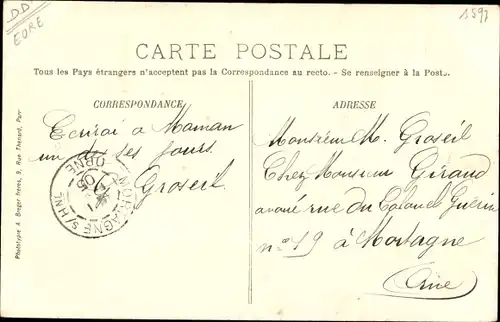 D.D
EURE
1597
CARTE POSTALE
Tous les Pays étrangers n'acceptent pas la Correspondance au recto. - Se renseigner à la Poste.
CORRESPONDANCE
Ecrirai a Maman
un de ses jours
Groseil
MORTAGNE S/HNE
ORNE
05
ADRESSE
Monsieur M. Groseil
Chez Monsieur Giraud
avoué rue du Colonel Guérin
no 19 à Mortagne
Orne
Phototypie A. Breger frères, 9, Rue Thénard, Paris